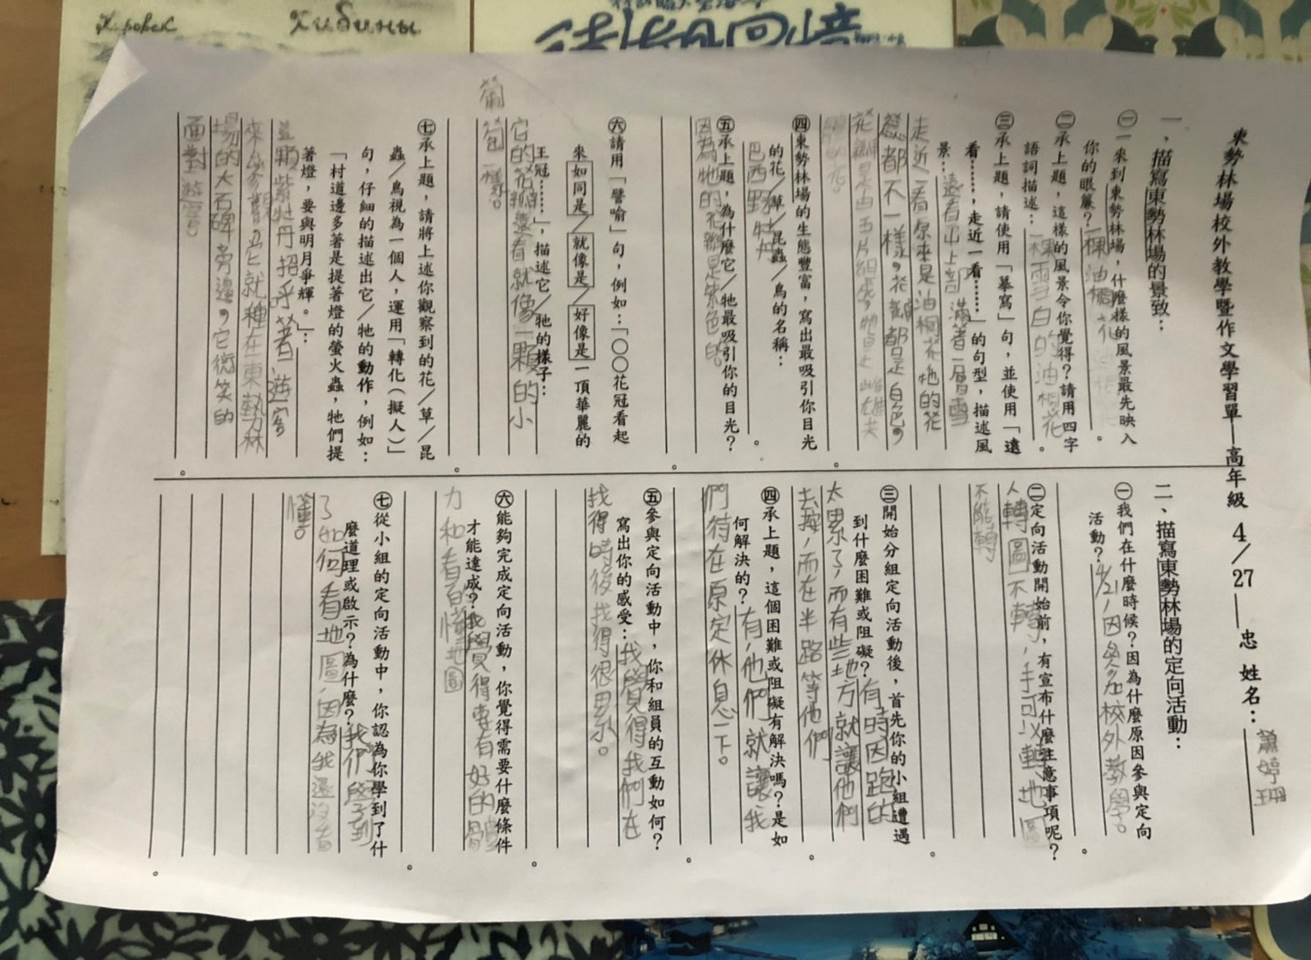 Хибины
東勢林場校外教學暨作文學習單—高年級 4/27—忠 姓名：蕭婷珊
一、描寫東勢林場的景致：
㊀一來到東勢林場，什麼樣的風景最先映入
你的眼簾？一棵油桐花
。
㊁承上題，這樣的風景令你覺得？請用四字
語詞描述：一棵雪白的油桐花
。
㊂承上題，請使用「摹寫」句，並使用「遠
看……，走近一看……」的句型，描述風
景：遠看山上部滿著一層雪
走近一看原來是油桐花他的花
都不一樣，花都是白色，
花瓣是由五片組成，
。
㊃東勢林場的生態豐富，寫出最吸引你目光
的花／草／昆蟲／鳥的名稱：
巴西野牡丹
。
㊄承上題，為什麼它／牠最吸引你的目光？
因為牠的花瓣是紫色的
。
㊅請用「譬喻」句，例如：「○○花冠看起
來如同是／就像是／好像是一頂華麗的
王冠……」，描述它／牠的樣子：
它的花瓣還看就像一顆的小
葡萄一樣。
。
㊆承上題，請將上述你觀察到的花／草／昆
蟲／鳥視為一個人，運用「轉化（擬人）」
句，仔細的描述出它／牠的動作，例如：
「村道邊多著是提著燈的螢火蟲，牠們提
著燈，要與明月爭輝。」：
牡丹招呼著遊客
來參觀，它就種在東勢林
場的大石碑旁邊，它微笑的
面對遊客
。
二、描寫東勢林場的定向活動：
㊀我們在什麼時候？因為什麼原因參與定向
活動？4/21，因參加校外教學。
。
㊁定向活動開始前，有宣布什麼注意事項呢？
人轉圖不轉，手可以轉地圖
不能轉
。
㊂開始分組定向活動後，首先你的小組遭遇
到什麼困難或阻礙？有時因跑的
太累了，而有些地方就讓他們
去按，而在半路等他們
。
㊃承上題，這個困難或阻礙有解決嗎？是如
何解決的？有，他們就讓我
們待在原定休息一下。
。
㊄參與定向活動中，你和組員的互動如何？
寫出你的感受：我覺得我們在
找得時後找得很累。
。
㊅能夠完成定向活動，你覺得需要什麼條件
才能達成？我覺得要有好的體
力和看的懂地圖
。
㊆從小組的定向活動中，你認為你學到了什
麼道理或啟示？為什麼？我們學到
了如何看地圖，因為我還沒看
懂。
。